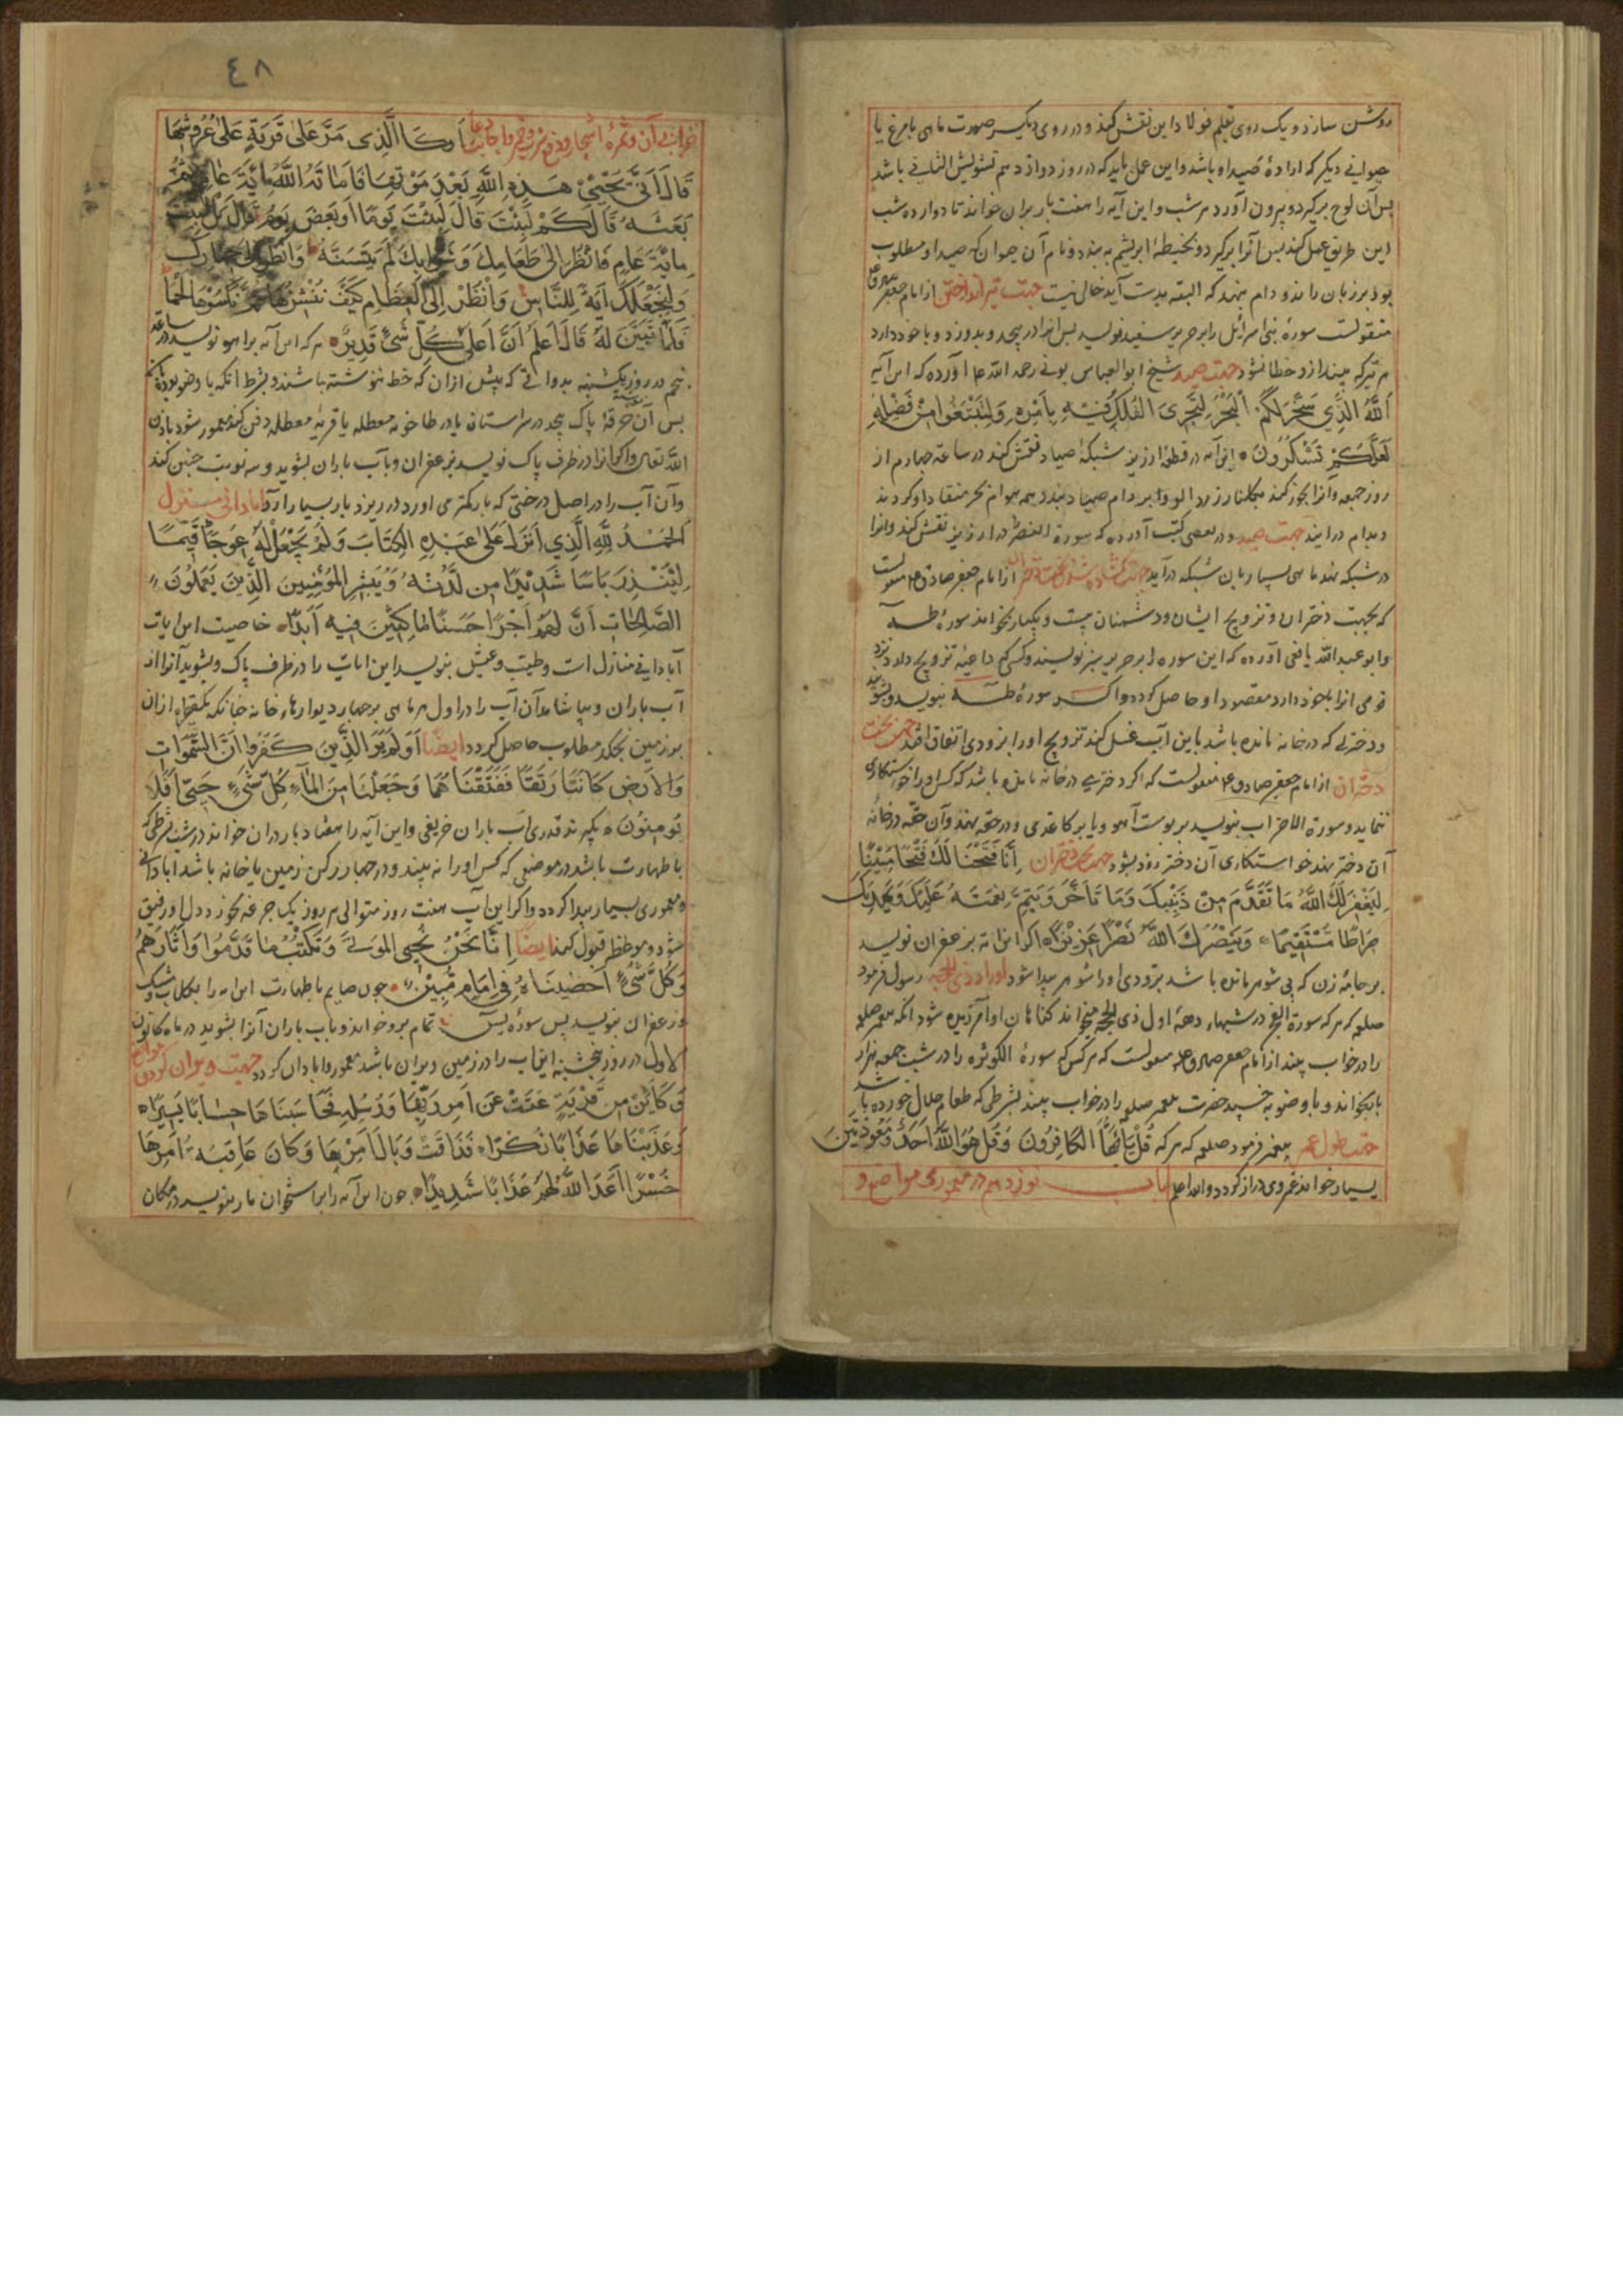 روشن سازد و یک روی بقلم فولاد این نقش کند و در روی دیگر صورت ماهی یا مرغ یا
حیوانی دیگر که ارادهٔ صید او باشد و این عمل باید که در روز دوازدهم تشرین الثانی باشد
پس آن لوح برگیرد و بیرون آورد هر شب و این آیه را هفت بار بران خواند تا دوازده شب
این طریق عمل کند پس آنرا برگیرد و بخیطهٔ ابریشم به بندد و نام آن حیوان که صید او مطلوب
بود بر زبان راند و دام بنهد که البته بدست آید خالی نیست جهت تیر انداختن از امام جعفر صادق
منقولست سورهٔ بنی اسرائیل را بر حریر سفید نویسد پس آنرا در پیچد و بدوزد و با خود دارد
هر تیر که بیندازد خطا نشود جهت صید شیخ ابوالعباس بونی رحمه الله آورده که این آیه
اَللّٰهُ الَّذِی سَخَّرَ لَكُمُ الْبَحْرَ لِتَجْرِیَ الْفُلْكُ فِیهِ بِاَمْرِهِ وَلِتَبْتَغُوا مِنْ فَضْلِهِ
لَعَلَّكُمْ تَشْكُرُونَ این آیه در قطعهٔ ارزیز شبکهٔ صیاد نقش کند در ساعة چهارم از
روز جمعه و آنرا بخور کند
و بدام در ایند جهت صید و در بعضی کتب آورده که سورة در ارزیز نقش کند و آنرا
در شبکه بندد ماهی بسیار بان شبکه در آید از امام جعفر صادق ع منقولست
که بجهت دختران و تزویج ایشان و دشمنان بیست و یکبار بخواند سورهٔ طـه
و ابو عبدالله یافعی آورده که این سوره را بر حریر سبز نویسند و کسی که داعیهٔ تزویج دارد نزد
قومی آنرا با خود دارد مقصود او حاصل گردد و اگر سورهٔ طـه بنویسد و بشوید
و دختری که در خانه مانده باشد باین آب غسل کند تزویج او را بزودی اتفاق افتد جهت بخت
دختران از امام جعفر صادق ع منقولست که اگر دختری در خانه مانده باشد که کس او را خواستکاری
ننماید و سورة الاحزاب بنویسد بر پوست آهو و یا بر کاغذی و در حقه نهد و آن حقه در خانهٔ
آن دختر نهد خواستکاری آن دختر زود بشود جهت دختران اِنَّا فَتَحْنَا لَكَ فَتْحًا مُبِینًا
لِیَغْفِرَ لَكَ اللّٰهُ مَا تَقَدَّمَ مِنْ ذَنْبِكَ وَمَا تَاَخَّرَ وَیُتِمَّ نِعْمَتَهُ عَلَیْكَ وَیَهْدِیَكَ
صِرَاطًا مُسْتَقِیمًا وَیَنْصُرَكَ اللّٰهُ نَصْرًا عَزِیزًا اگر این آیه بزعفران نویسد
بر جامهٔ زن که بی شوهر مانده باشد بزودی او را شوهر پیدا شود اوراد ذی الحجه رسول فرمود
صلعم که هر که سورة الفجر در شبهاء دههٔ اول ذی الحجه بخواند گناهان او آمرزیده شود
را در خواب بیند از امام جعفر صادق منقولست که هر کس که سورهٔ الکوثر را در شب جمعه هزار
بار بخواند و با وضو بخسپد حضرت پیغمبر صلعم را در خواب بیند بشرطی که طعام حلال خورده باشد
جهت طول عمر پیغمبر فرمود صلعم که هر که قُلْ یَا اَیُّهَا الْكَافِرُونَ وَقُلْ هُوَ اللّٰهُ اَحَدٌ وَمُعَوَّذَتَیْنَ
بسیار خواند عمر وی دراز گردد والله اعلم باب نوزدهم در معموری مواضع و
٤٨
خرابی آن و ثمرهٔ اشجار و دفع اَوْ كَالَّذِی مَرَّ عَلٰی قَرْیَةٍ عَلٰی عُرُوشِهَا
قَالَ اَنّٰی یُحْیِی هٰذِهِ اللّٰهُ بَعْدَ مَوْتِهَا فَاَمَاتَهُ اللّٰهُ مِائَةَ عَامٍ ثُمَّ
بَعَثَهُ قَالَ كَمْ لَبِثْتَ قَالَ لَبِثْتُ یَوْمًا اَوْ بَعْضَ یَوْمٍ قَالَ بَلْ لَبِثْتَ
مِائَةَ عَامٍ فَانْظُرْ اِلٰی طَعَامِكَ وَشَرَابِكَ لَمْ یَتَسَنَّهْ وَانْظُرْ اِلٰی حِمَارِكَ
وَلِنَجْعَلَكَ اٰیَةً لِلنَّاسِ وَانْظُرْ اِلَی الْعِظَامِ كَیْفَ نُنْشِزُهَا ثُمَّ نَكْسُوهَا لَحْمًا
فَلَمَّا تَبَیَّنَ لَهُ قَالَ اَعْلَمُ اَنَّ اللّٰهَ عَلٰی كُلِّ شَیْءٍ قَدِیرٌ هر که این آیه بر آهو نویسد در ساعة
پنجم در روز یکشنبه بدواتی که پیش ازان که خط ننوشته باشند و بشرط آنکه با وضو بود
پس آن در خرقهٔ پاک پیچد در سراستان یا در طاحونه معطله یا قریهٔ معطله دفن کند معمور شود باذن
الله تعالی و اگر آنرا در ظرف پاک نویسد بزعفران و بآب باران بشوید و سه نوبت چنین کند
و آن آب را در اصل درختی که بار کمتر می آورد در ریزد بار بسیار آرد آبادانی منزل
اَلْحَمْدُ لِلّٰهِ الَّذِی اَنْزَلَ عَلٰی عَبْدِهِ الْكِتَابَ وَلَمْ یَجْعَلْ لَهُ عِوَجًا قَیِّمًا
لِیُنْذِرَ بَاْسًا شَدِیدًا مِنْ لَدُنْهُ وَیُبَشِّرَ الْمُؤْمِنِینَ الَّذِینَ یَعْمَلُونَ
الصَّالِحَاتِ اَنَّ لَهُمْ اَجْرًا حَسَنًا مَاكِثِینَ فِیهِ اَبَدًا خاصیت این ایات
آبادانی منازل است و طیب و عیش بنویسد این ایات را در ظرف پاک و بشوید آنرا از
آب باران و بپاشاند آن آب را در اول هر ماهی بر چهار دیوارهاء خانه چنانکه یکقطره ازان
بر زمین نچکد مطلوب حاصل گردد ایضًا اَوَلَمْ یَرَ الَّذِینَ كَفَرُوا اَنَّ السَّمٰوَاتِ
وَالْاَرْضَ كَانَتَا رَتْقًا فَفَتَقْنَاهُمَا وَجَعَلْنَا مِنَ الْمَاءِ كُلَّ شَیْءٍ حَیٍّ اَفَلَا
یُؤْمِنُونَ بگیرند قدری آب باران خریفی و این آیه را هفتاد بار دران خواند
با طهارت باشد در موضعی که کس او را نه بیند و در چهار رکن زمین یا خانه باشد آبادانی
و معموری بسیار پیدا گردد و اگر این آب هفت روز متوالی هر روز یک جرعه بخورد دل او رفیق
شود و موعظه قبول کند ایضًا اِنَّا نَحْنُ نُحْیِی الْمَوْتٰی وَنَكْتُبُ مَا قَدَّمُوا وَاٰثَارَهُمْ
وَكُلَّ شَیْءٍ اَحْصَیْنَاهُ فِی اِمَامٍ مُبِینٍ چون صایم با طهارت این آیه را بگلاب و مشک
و زعفران بنویسد پس سورهٔ یٰسٓ تمام برو خواند و بآب باران آنرا بشوید در ماه کانون
الاول در روز پنجشنبه این آب را در زمین ویران باشد معمور و ابادان گردد جهت ویران کردن مواضع
وَكَاَیِّنْ مِنْ قَرْیَةٍ عَتَتْ عَنْ اَمْرِ رَبِّهَا وَرُسُلِهِ فَحَاسَبْنَاهَا حِسَابًا یَسِیرًا
وَعَذَّبْنَاهَا عَذَابًا نُكْرًا فَذَاقَتْ وَبَالَ اَمْرِهَا وَكَانَ عَاقِبَةُ اَمْرِهَا
خُسْرًا اَعَدَّ اللّٰهُ لَهُمْ عَذَابًا شَدِیدًا چون این آیه را بر استخوان مار بنویسد در مکان